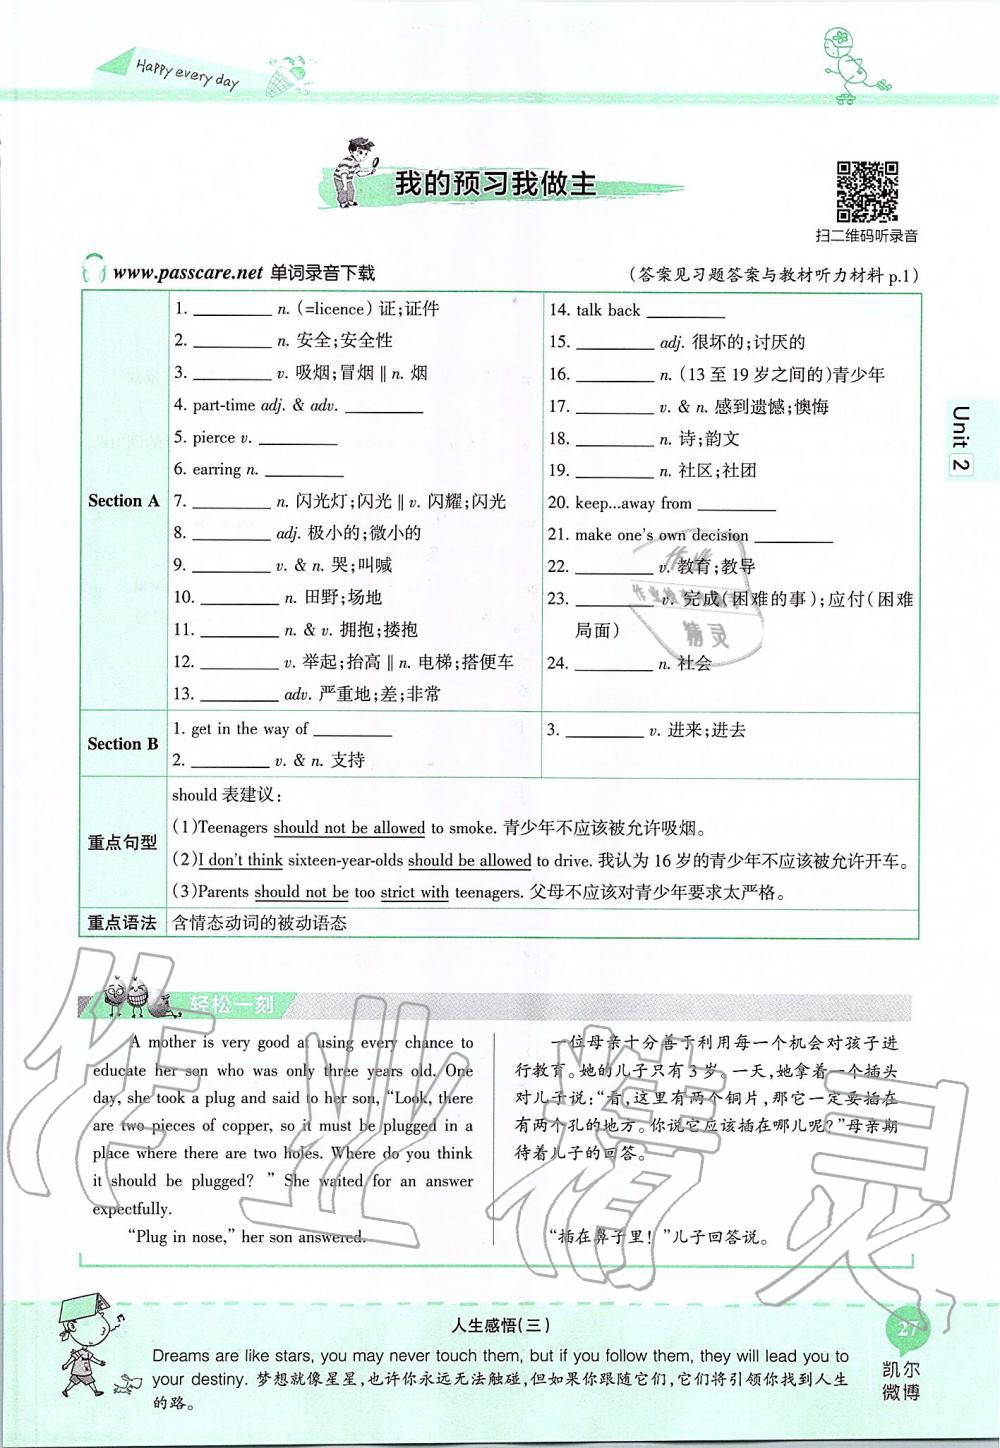 Happy every day
我的预习我做主
扫二维码听录音
www.passcare.net 单词录音下载
(答案见习题答案与教材听力材料 p.1)
Section A
1. ________ n. (=licence) 证;证件
2. ________ n. 安全;安全性
3. ________ v. 吸烟;冒烟 ‖ n. 烟
4. part-time adj. & adv. ________
5. pierce v. ________
6. earring n. ________
7. ________ n. 闪光灯;闪光 ‖ v. 闪耀;闪光
8. ________ adj. 极小的;微小的
9. ________ v. & n. 哭;叫喊
10. ________ n. 田野;场地
11. ________ n. & v. 拥抱;搂抱
12. ________ v. 举起;抬高 ‖ n. 电梯;搭便车
13. ________ adv. 严重地;差;非常
14. talk back ________
15. ________ adj. 很坏的;讨厌的
16. ________ n. (13 至 19 岁之间的)青少年
17. ________ v. & n. 感到遗憾;懊悔
18. ________ n. 诗;韵文
19. ________ n. 社区;社团
20. keep...away from ________
21. make one's own decision ________
22. ________ v. 教育;教导
23. ________ v. 完成(困难的事);应付(困难
局面)
24. ________ n. 社会
Unit 2
Section B
1. get in the way of ________
2. ________ v. & n. 支持
3. ________ v. 进来;进去
重点句型
should 表建议:
(1)Teenagers should not be allowed to smoke. 青少年不应该被允许吸烟。
(2)I don't think sixteen-year-olds should be allowed to drive. 我认为 16 岁的青少年不应该被允许开车。
(3)Parents should not be too strict with teenagers. 父母不应该对青少年要求太严格。
重点语法
含情态动词的被动语态
轻松一刻
A mother is very good at using every chance to
educate her son who was only three years old. One
day, she took a plug and said to her son, “Look, there
are two pieces of copper, so it must be plugged in a
place where there are two holes. Where do you think
it should be plugged? ” She waited for an answer
expectfully.
“Plug in nose,” her son answered.
一位母亲十分善于利用每一个机会对孩子进
行教育。她的儿子只有 3 岁。一天,她拿着一个插头
对儿子说:“看,这里有两个铜片,那它一定要插在
有两个孔的地方。你说它应该插在哪儿呢?”母亲期
待着儿子的回答。
“插在鼻子里!”儿子回答说。
作业精灵
人生感悟(三)
Dreams are like stars, you may never touch them, but if you follow them, they will lead you to
your destiny. 梦想就像星星,也许你永远无法触碰,但如果你跟随它们,它们将引领你找到人生
的路。
27
凯尔
微博